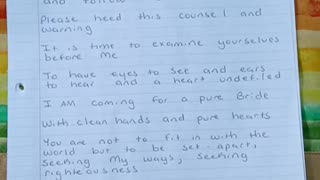 and follow
Please heed this counsel and
warning
It is time to examine yourselves
before Me
To have eyes to see and ears
to hear and a heart undefiled
I AM coming for a pure Bride
With clean hands and pure hearts
You are not to fit in with the
world but to be set apart,
seeking My ways, seeking
righteousness